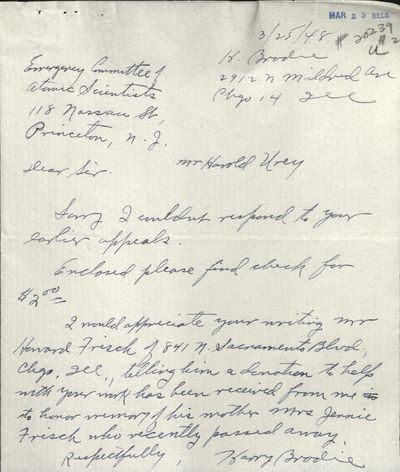 MAR 29 RECD
3/25/48
# 20239
# 2
U
H. Brodie
2912 N Mildred Ave
Chgo 14 Ill
Emergency Committee of
Atomic Scientists
118 Nassau St,
Princeton, N. J.
Mr Harold Urey
Dear Sir.
Sorry I couldnt respond to your
earlier appeals.
Enclosed please find check for
$2.00
I would appreciate your writing Mr
Howard Frisch of 841 N. Sacramento Blvd,
Chgo, Ill, telling him a donation to help
with your work has been received from me
to honor memory of his mother Mrs Jennie
Frisch who recently passed away.
Respectfully, Harry Brodie